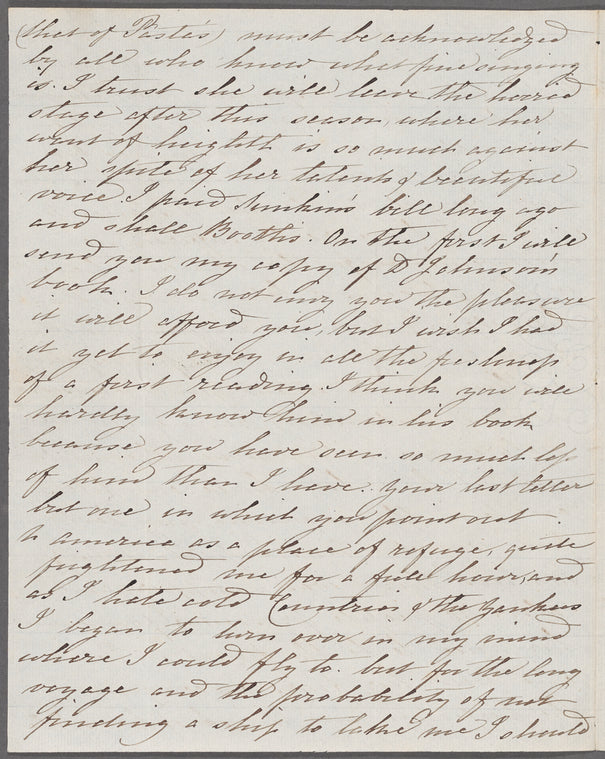 (that of Pasta's) must be acknowledged
by all who know what fine singing
is. I trust she will leave the horrid
stage after this season, where her
want of heighth is so much against
her spite of her talents & beautiful
voice. I paid Junkin's bill long ago
and shall Booths. On the first I will
send you my copy of Dr Johnson's
book. I do not envy you the pleasure
it will afford you, but I wish I had
it yet to enjoy in all the freshness
of a first reading I think you will
hardly know him in his book
because you have seen so much less
of him than I have. your last letter
but one in which you point out
to america as a place of refuge, quite
frightened me for a full hour, and
as I hate cold Countries & the Yankees
I began to turn over in my mind
where I could fly to. but for the long
voyage and the probability of not
finding a ship to take me I should